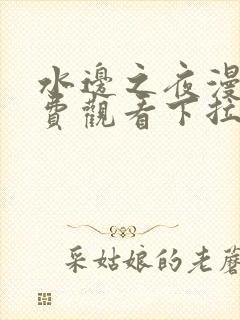 水邊之夜漫
費觀看下拉
采姑娘的老蘑